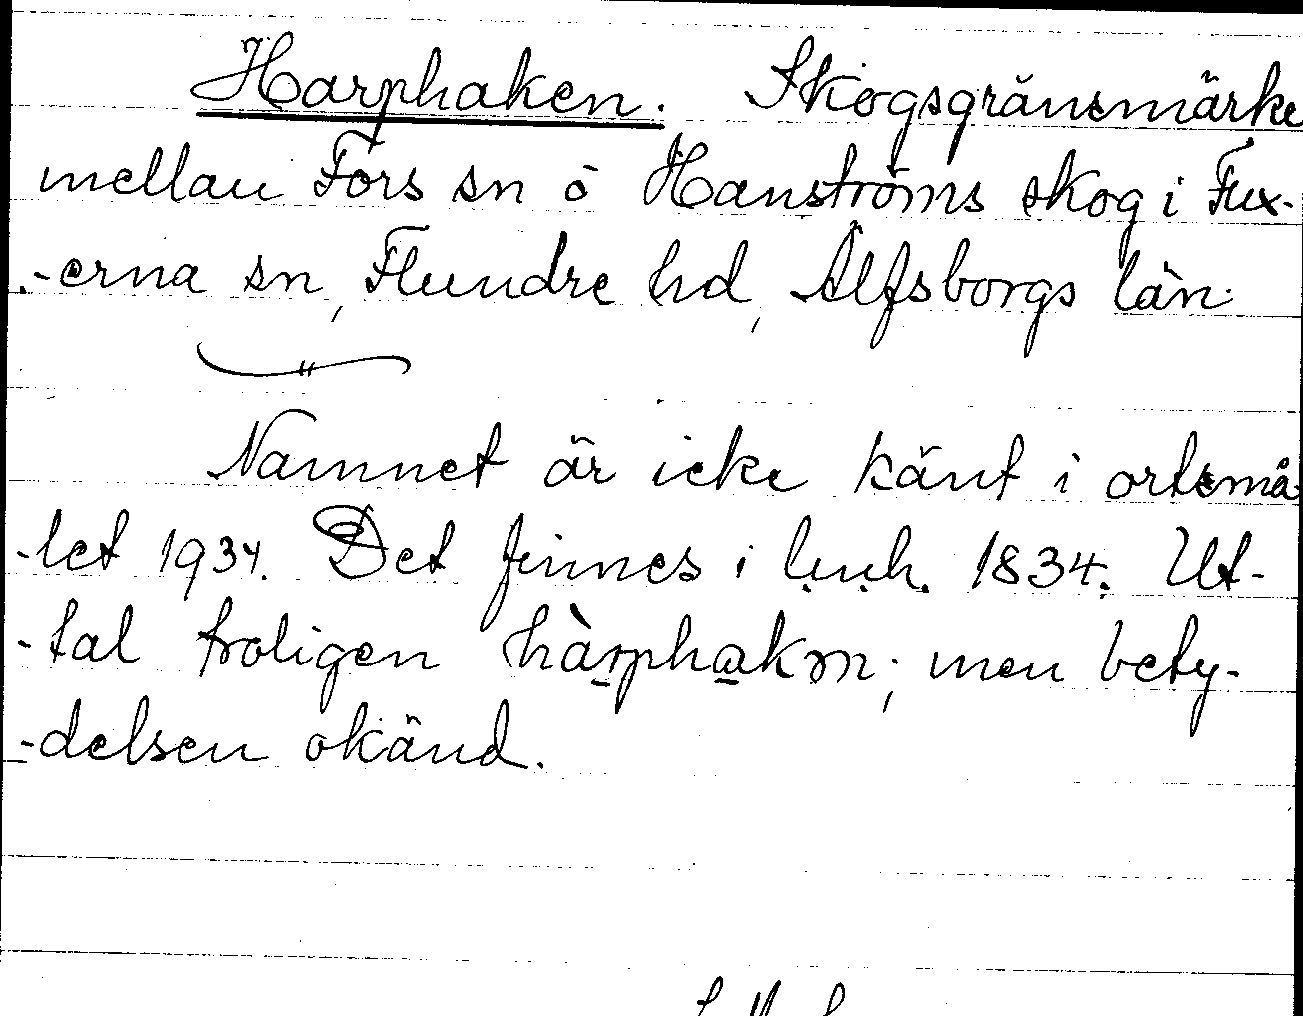 Harphaken. Skogsgränsmärke
mellan Fors sn o Hanströms skog i Fux-
-erna sn, Flundre hd, Älfsborgs län.
Namnet är icke känt i ortsmå-
-let 1934. Det finnes i l.u.h. 1834. Ut-
-tal troligen hàrphakm; men bety-
-delsen okänd.